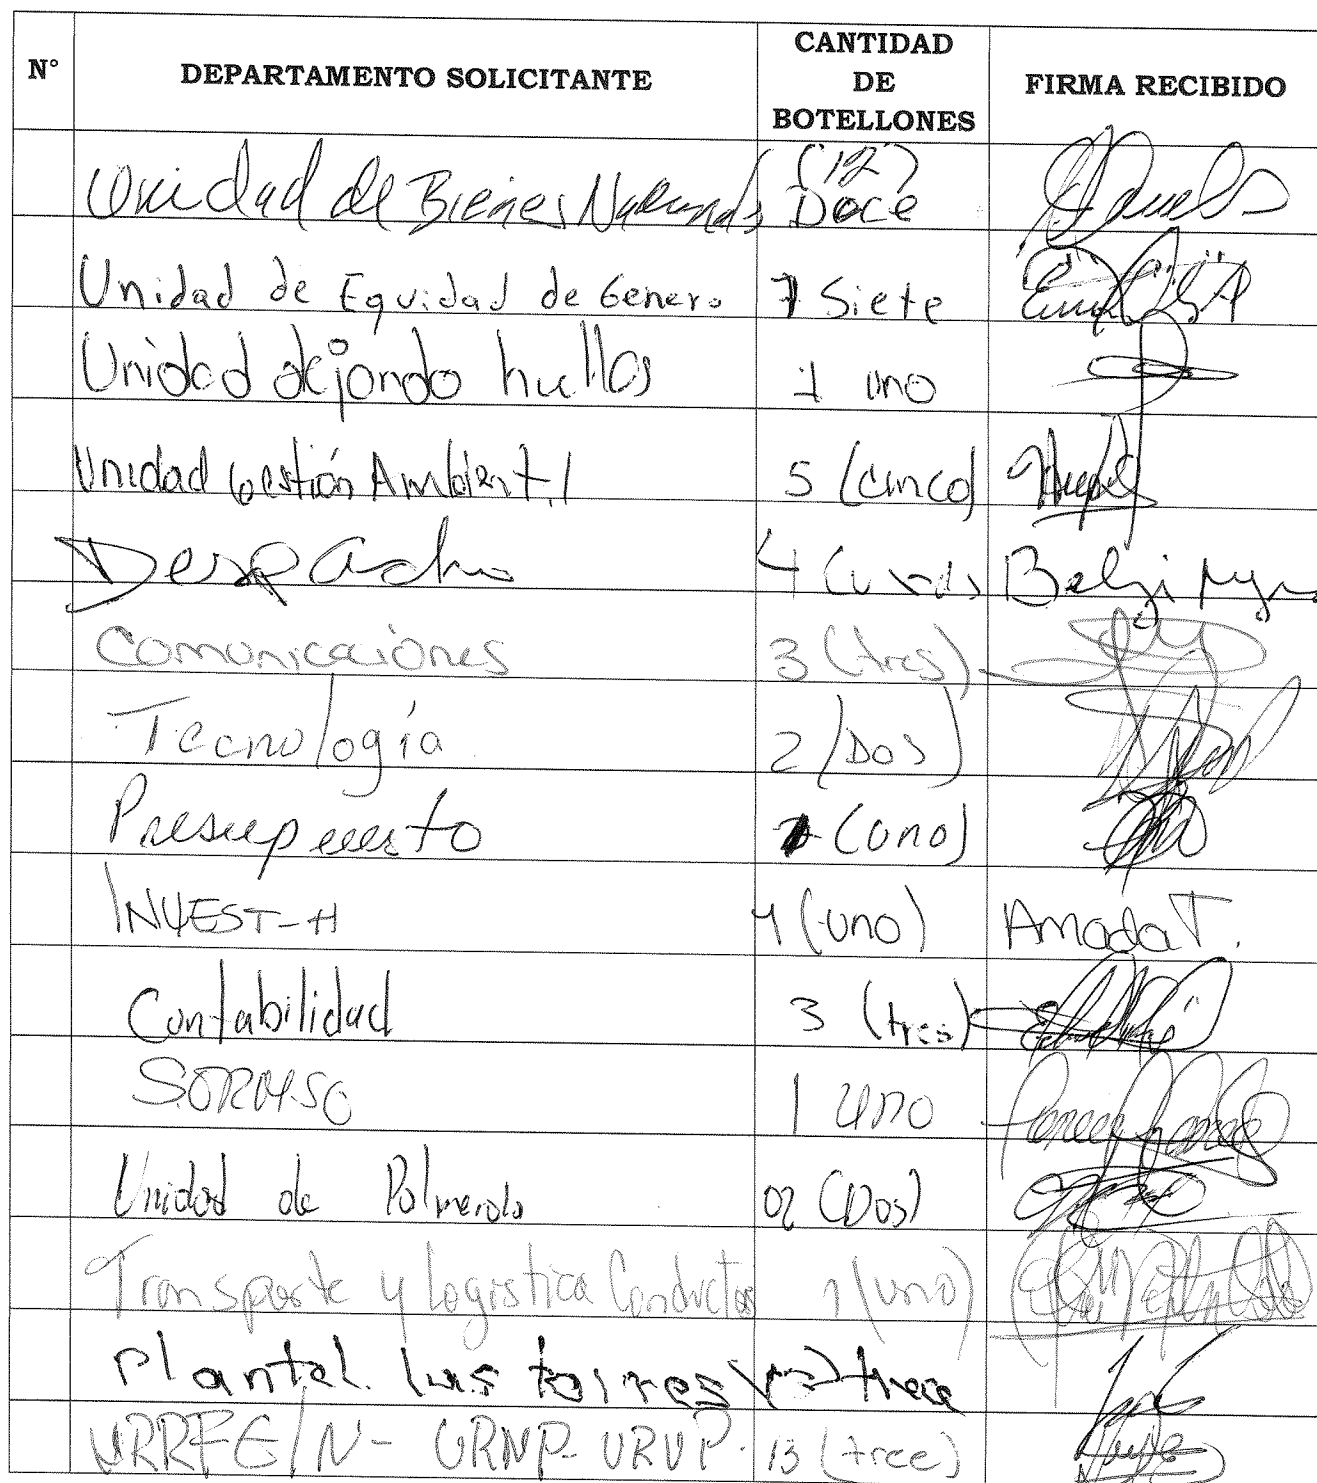 N° DEPARTAMENTO SOLICITANTE CANTIDAD DE BOTELLONES FIRMA RECIBIDO
Unidad de Bienes Nacionales (12) Doce
Unidad de Equidad de Genero 7 Siete
Unidad dejando huellas 1 uno
Unidad Gestión Ambiental 5 (cinco)
Despacho 4 Belzi
Comunicaciones 3 (tres)
Tecnología 2 (Dos)
Presupuesto 1 (uno)
INVEST-H 1 (uno) Amada T.
Contabilidad 3 (tres)
1 uno
Unidad de Palmerola 02 (Dos)
Transporte y Logistica Conductos 1 (uno)
Plantel las torres trece
URRFE/N- URNP- URVP. 13 (trece)